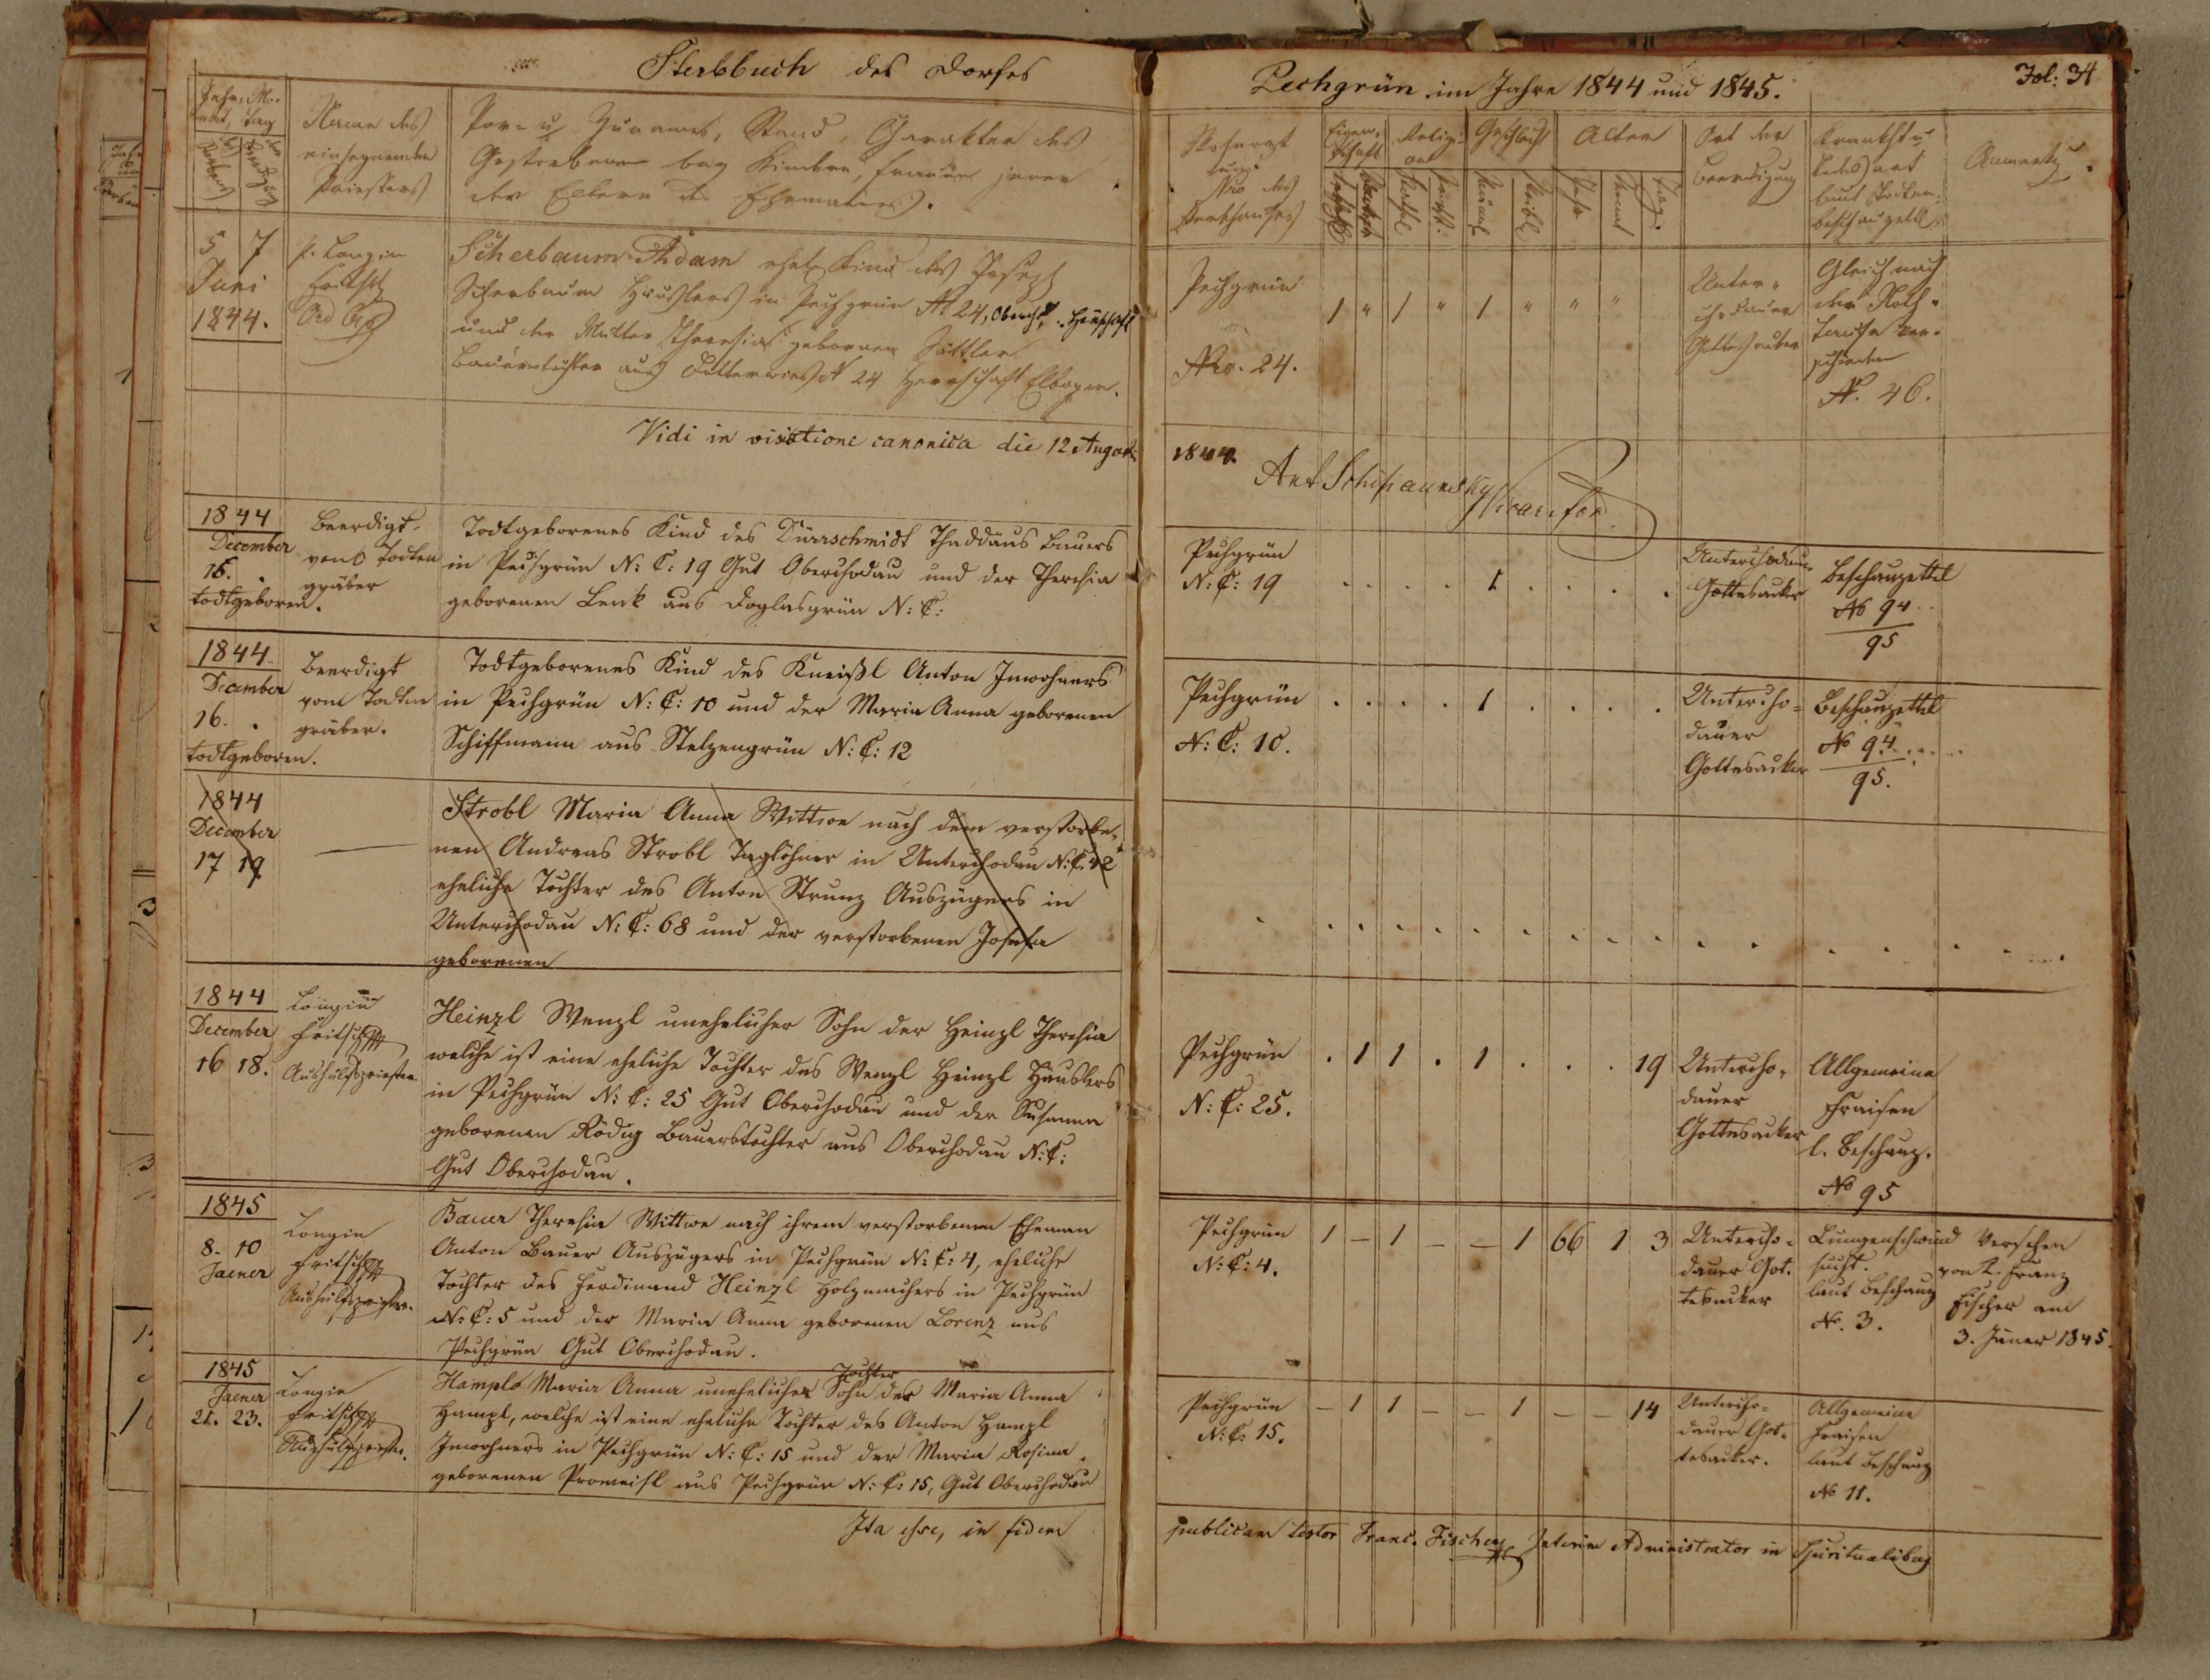 Sterbbuch des Dorfes
Pechgrün im Jahre 1844 und 1845.
Fol: 34
Jahr, Mo-
nat, Tag
Name des
einsegnenden
Priesters
Vor- u Zuname, Stand, Charakter des
Gestorbenen bey Kindern, Frauen jener
der Eltern des Ehemannes.
Nro des
Sterbhauses
Eigen-
schaft
Religi-
on
Geschlecht
Alter
Jahr
Monat
Tag.
Ort der
Beerdigung
Krankht u
Todesart
laut Todten-
beschauzettl
Anmerkg.
5 7
Juni
1844.
P. Longin
Fritsch
Scherbaum Adam ehel. Kind des Joseph
Scherbaum Häuslers in Pechgrün N 24, Oberch. Herrschaft
und der Mutter Theresia gebornen Sattler
Bauerstochter aus N 24 Herrschaft Elbogen.
Pechgrün
Nro. 24.
1 " 1 " 1 " " "
Unter-
chodauer
Gottesacker
Gleich nach
der Noth-
taufe ver-
schieden
N. 46.
Vidi in visitatione canonica die 12 August
1844.
Ant Schihaunsky
1844
December
16.
todtgeboren.
Beerdigt
vom Todten
gräber
Todtgeborenes Kind des Dürrschmidt Thaddäus Bauers
in Pechgrün N: C: 19 Gut Oberchodau und der Theresia
geborenen Lenk aus Doglasgrün N: C:
Pechgrün
N: C: 19
. . . . 1 . . . .
Unterchodauer
Gottesacker
Beschauzettel
No 94
95
1844
December
16. .
todtgeboren.
Beerdigt
vom Todten
gräber.
Todtgeborenes Kind des Kneißl Anton Inwohners
in Pechgrün N: C: 10 und der Maria Anna geborenen
Schiffmann aus Stelzengrün N: C: 12
Pechgrün
N: C: 10.
. . . . 1 . . . .
Untercho-
dauer
Gottesacker
Beschauzettel
No 94
95.
1844
December
17 19
Strobl Maria Anna Wittwe nach dem verstorbe-
nen Andreas Strobl Taglöhner in Unterchodau N: C: 42
eheliche Tochter des Anton Strunz Auszügers in
Unterchodau N: C: 68 und der verstorbenen Josefa
geborenen
1844
December
16 18.
Longin
Fritsch
Aushülfspriester
Heinzl Wenzl unehelicher Sohn der Heinzl Theresia
welche ist eine eheliche Tochter des Wenzl Heinzl Häuslers
in Pechgrün N: C: 25 Gut Oberchodau und der Susanna
geborenen Rödig Bauerstochter aus Oberchodau N: C:
Gut Oberchodau.
Pechgrün
N: C: 25.
. 1 1 . 1 . . . 19
Untercho-
dauer
Gottesacker
Allgemeine
Fraisen
l. Beschauz.
No 95
1845
8. 10
Jaener
Longin
Fritsch
Aushülfspriester.
Bauer Theresia Wittwe nach ihrem verstorbenen Ehemann
Anton Bauer Auszügers in Pechgrün N: C: 4, eheliche
Tochter des Ferdinand Heinzl Holzmachers in Pechgrün
N: C: 5 und der Maria Anna geborenen Lorenz aus
Pechgrün Gut Oberchodau.
Pechgrün
N: C: 4.
1 – 1 – – 1 66 1 3
Untercho-
dauer Got-
tesacker
Lungenschwind
sucht.
laut Beschauz
No. 3.
Versehen
von P. Franz
Fischer am
3. Jäner 1845.
1845
Jaener
21. 23.
Longin
Fritsch
Aushülfspriester.
Tochter
Hampl Maria Anna unehelicher Sohn der Maria Anna
Hampl, welche ist eine eheliche Tochter des Anton Hampl
Inwohners in Pechgrün N: C: 15 und der Maria Rosina
geborenen Promeisl aus Pechgrün N: C: 15, Gut Oberchodau
Pechgrün
N: C: 15.
– 1 1 – – 1 – – 14
Untercho-
dauer Got-
tesacker.
Allgemeine
Fraisen
laut Beschauz
No 11.
Ita esse, in fidem
publicam testor Franc. Fischer Interim Administrator in Spiritualibus